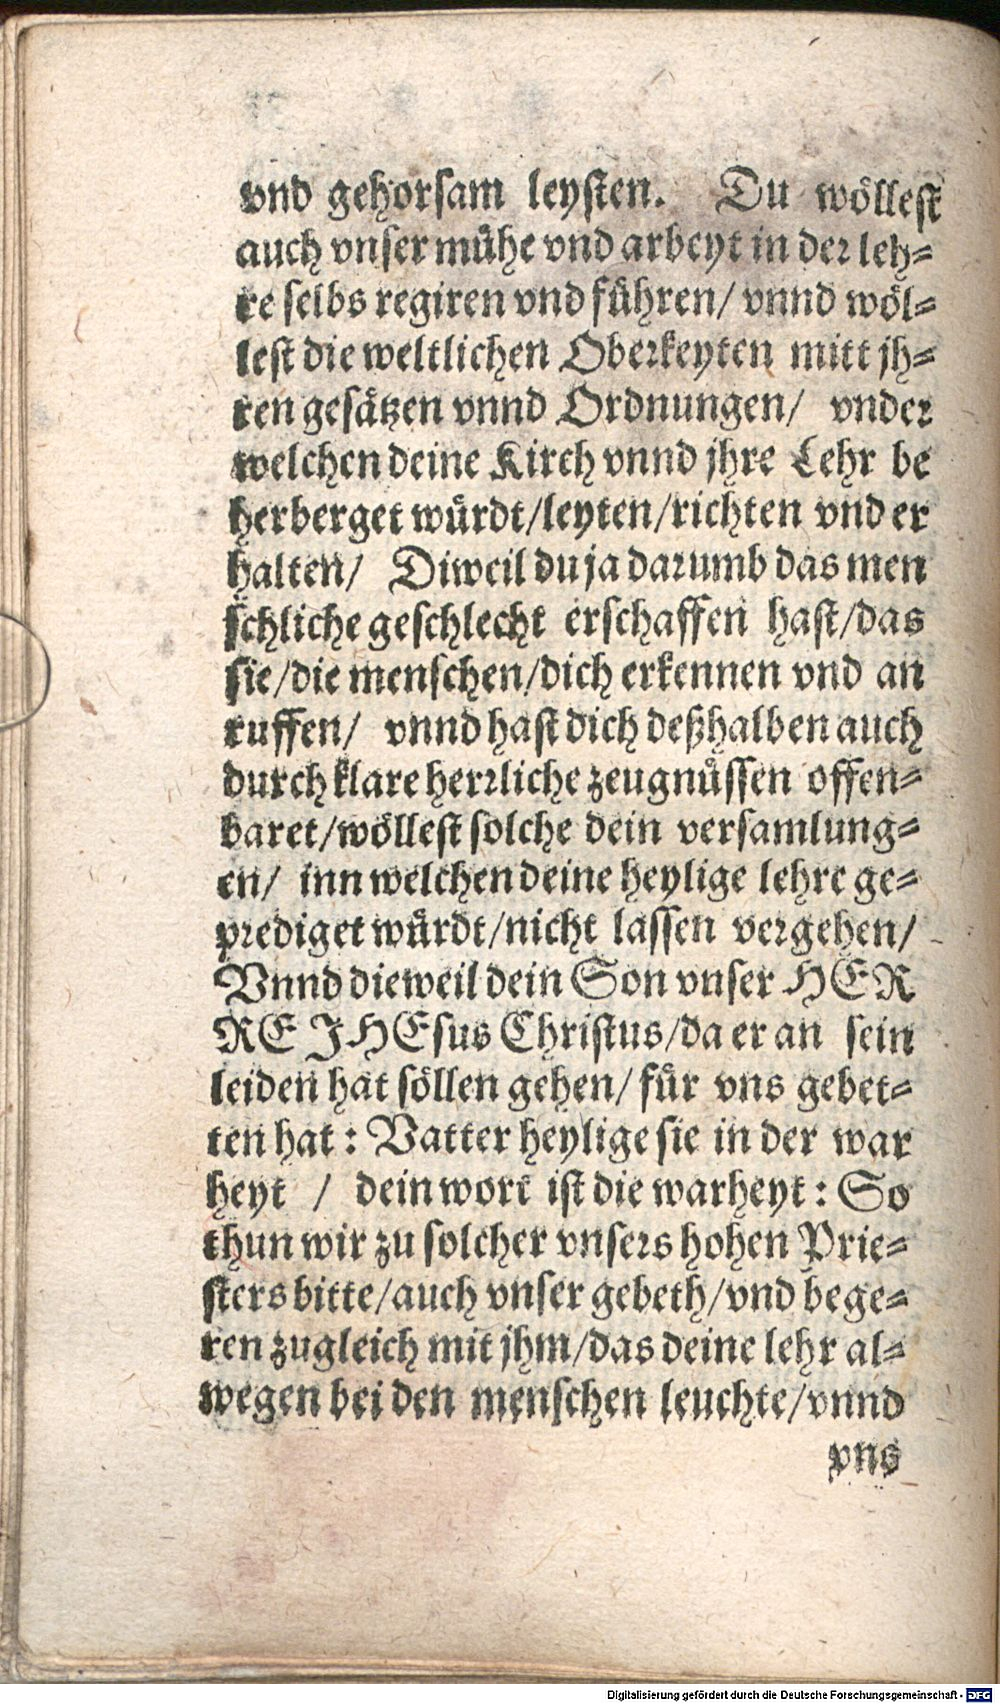 vnd gehorsam leysten. Du wöllest
auch vnser mühe vnd arbeyt in der leh-
re selbs regiren vnd führen/ vnnd wöl-
lest die weltlichen Oberkeyten mitt jh-
ren gesätzen vnnd Ordnungen/ vnder
welchen deine Kirch vnnd jhre Lehr be
herberget würdt/leyten/richten vnd er
halten/ Diweil du ja darumb das men
schliche geschlecht erschaffen hast/das
sie/die menschen/dich erkennen vnd an
ruffen/ vnnd hast dich deßhalben auch
durch klare herrliche zeugnüssen offen-
baret/wöllest solche dein versamlung-
en/ inn welchen deine heylige lehre ge-
prediget würdt/nicht lassen vergehen/
Vnnd dieweil dein Son vnser HER
RE JHEsus Christus/da er an sein
leiden hat söllen gehen/ für vns gebet-
ten hat: Vatter heylige sie in der war
heyt / dein wort ist die warheyt: So
thun wir zu solcher vnsers hohen Prie-
sters bitte/auch vnser gebeth/vnd bege-
ren zugleich mit jhm/das deine lehr al-
wegen bei den menschen leuchte/vnnd
vns
Digitalisierung gefördert durch die Deutsche Forschungsgemeinschaft - DFG